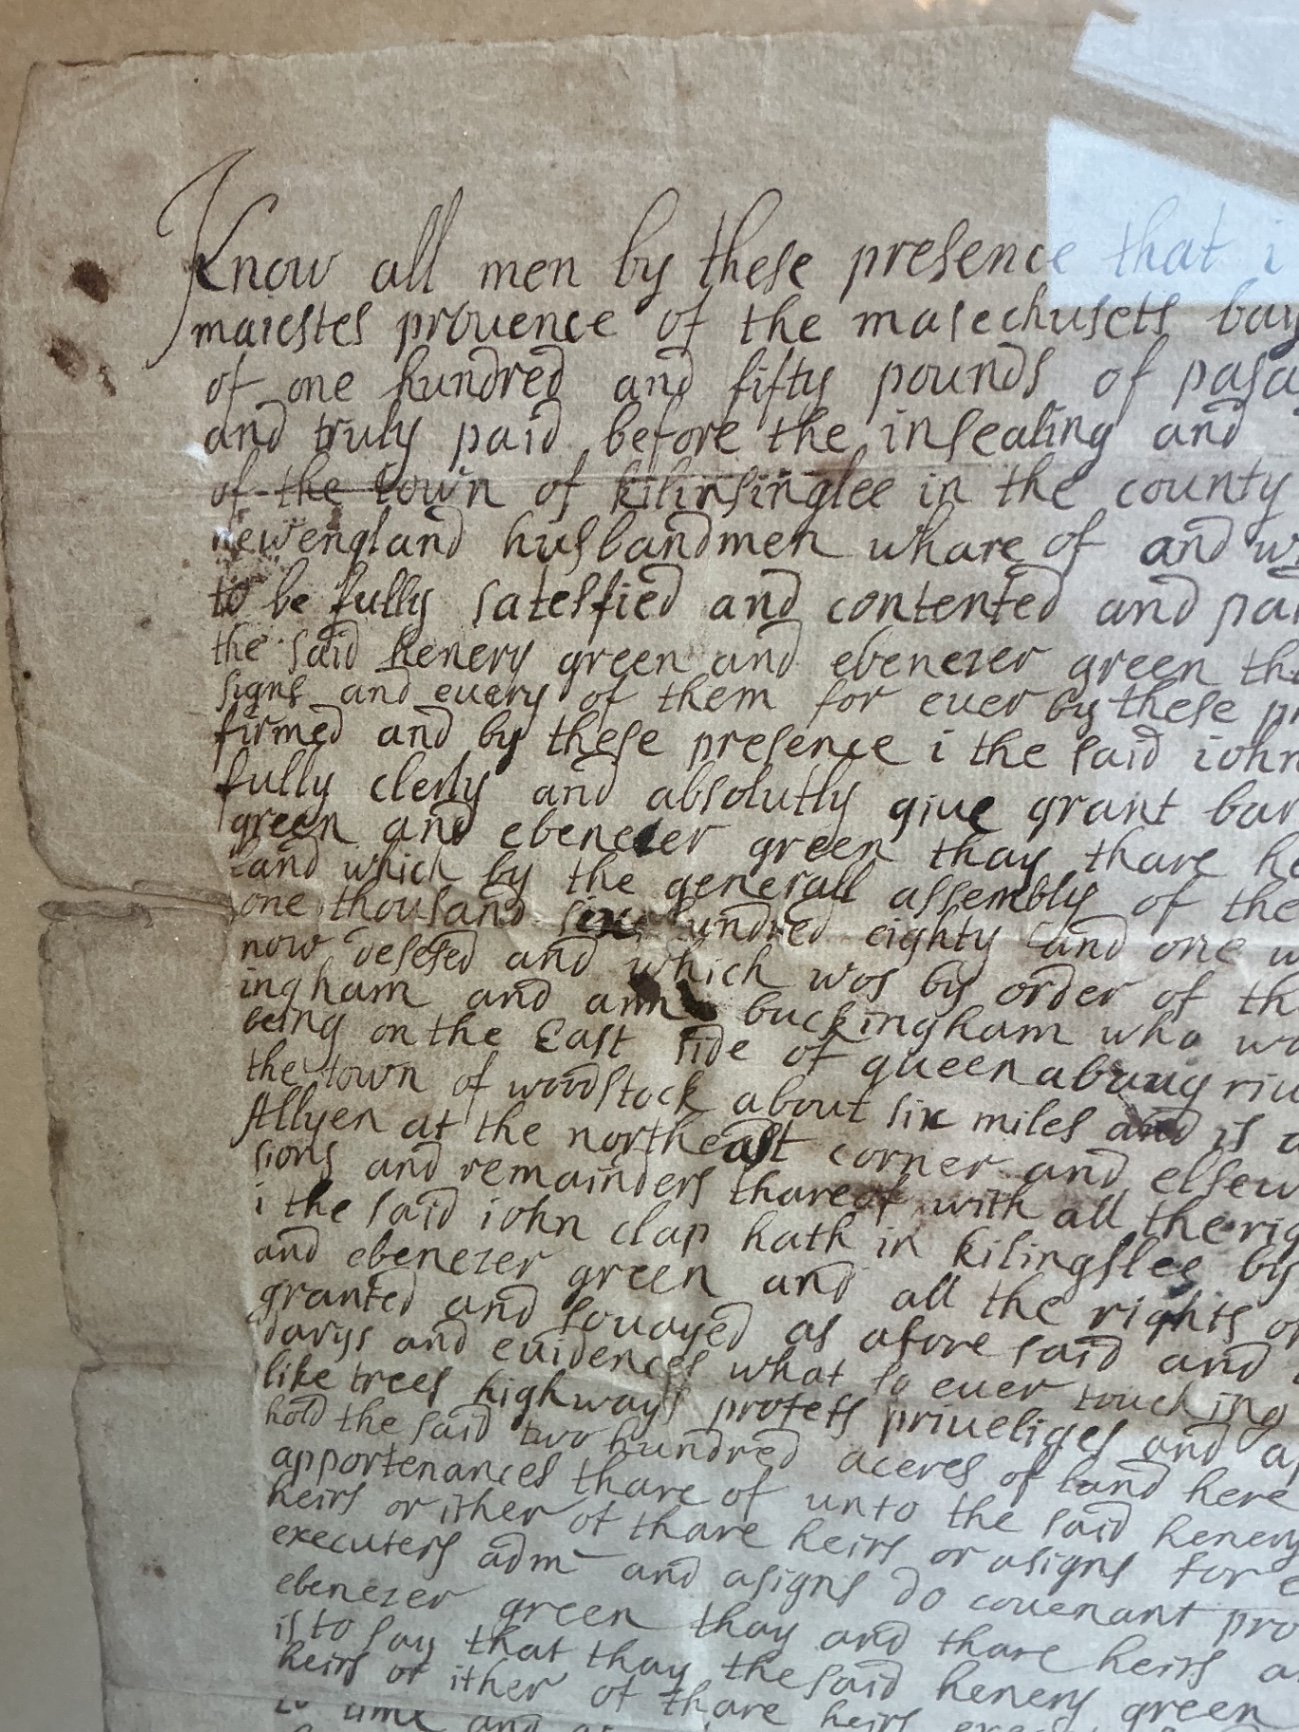 Know all men by these presence that i
maiestes prouence of the masechusets bay
of one hundred and fifty pounds of pasa
and truly paid before the insealing and
of the town of kilinsinglee in the county
newengland husbandmen whare of and
to be fully satesfied and contented and pai
the said henery green and ebenezer green tha
signs and euery of them for euer by these pr
firmed and by these presence i the said iohn
fully clerly and absolutly giue grant bar
green and ebenezer green thay thare he
land which by the generall assembly of the
one thousand six hundred eighty and one w
now desesed and which wos by order of th
ingham and ann buckingham who wa
being on the East side of queenabaug riu
the town of woodstock about six miles and is a
Allyen at the northeast corner and elsew
sions and remainders thareof with all the rig
i the said iohn clap hath in kilingslee by
and ebenezer green and all the rights of
granted and souayed as afore said and
darys and euidences what so euer touching
like trees highways profets priueliges and ap
hold the said two hundred aceres of land here
apportenances thare of unto the said henery
heirs or ither of thare heirs or asigns for e
executers adm and asigns do couenant pro
ebenezer green thay and thare heirs a
is to say that thay the said henery green
heirs or ither of thare heirs
to time and